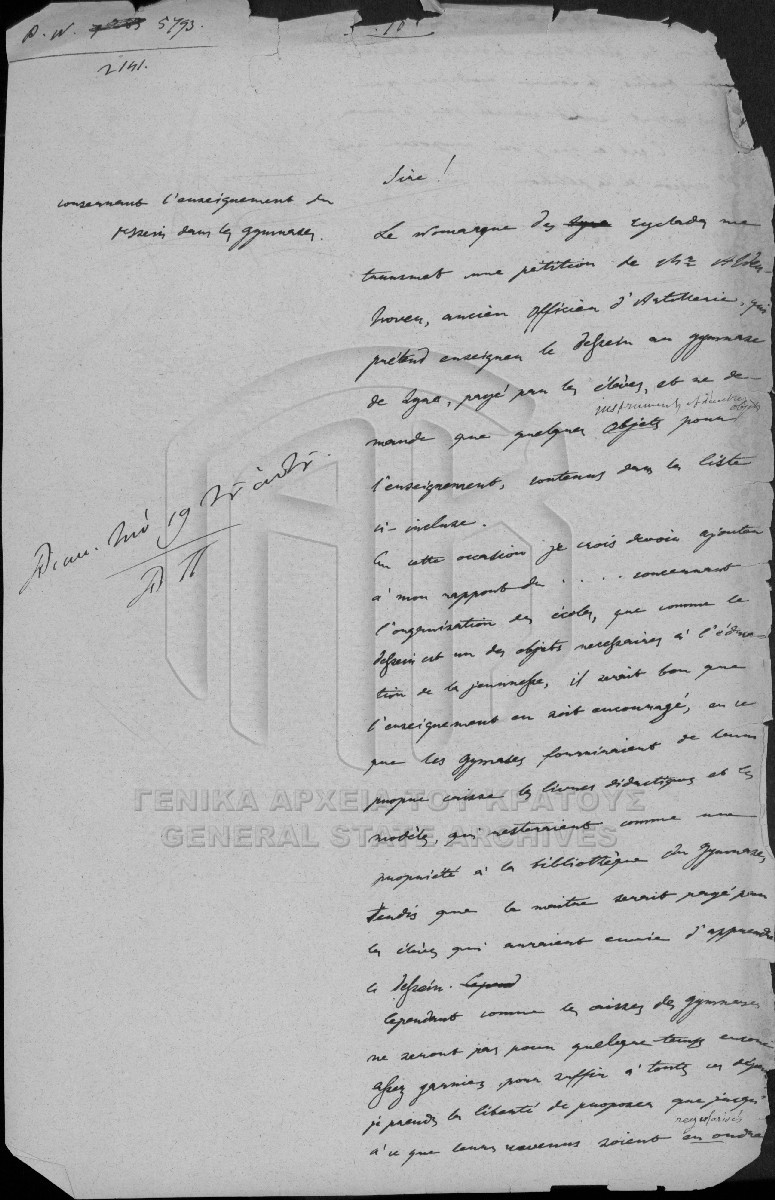 5793.
2141.
concernant l'enseignement du
dessein dans les gymnases.
Sire!
Le Nomarque des Cyclades me
transmet une pétition de Mr
hoven, ancien officier d'Artillerie, qui
prétend enseigner le dessein au gymnase
de Syra, payé par les élèves, et ne de-
mande que quelques objets pour
instruments et d'autres objets
l'enseignement, contenus dans la liste
ci-incluse.
En cette occasion je crois devoir ajouter
à mon rapport du ..... concernant
l'organisation des écoles, que comme le
dessein est un des objets necessaires à l'éduca-
tion de la jeunesse, il serait bon que
l'enseignement en soit encouragé, en ce
que les gymases fourniraient de leur
propre caisse les livres didactiques et les
modèls, qui resteraient comme une
propriété à la bibliothèque du gymnase,
tandis que le maitre serait payé par
les élèves qui auraient envie d'apprendre
le dessein.
Cependant comme les caisses des gymnases
ne seront pas pour quelque temps encore
assez garnies pour suffir à toutes ces dépen
je prends la liberté de proposer que jusqu'
à ce que leurs revenus soient en ordre
ΓΕΝΙΚΑ ΑΡΧΕΙΑ ΤΟΥ ΚΡΑΤΟΥΣ
GENERAL STATE ARCHIVES